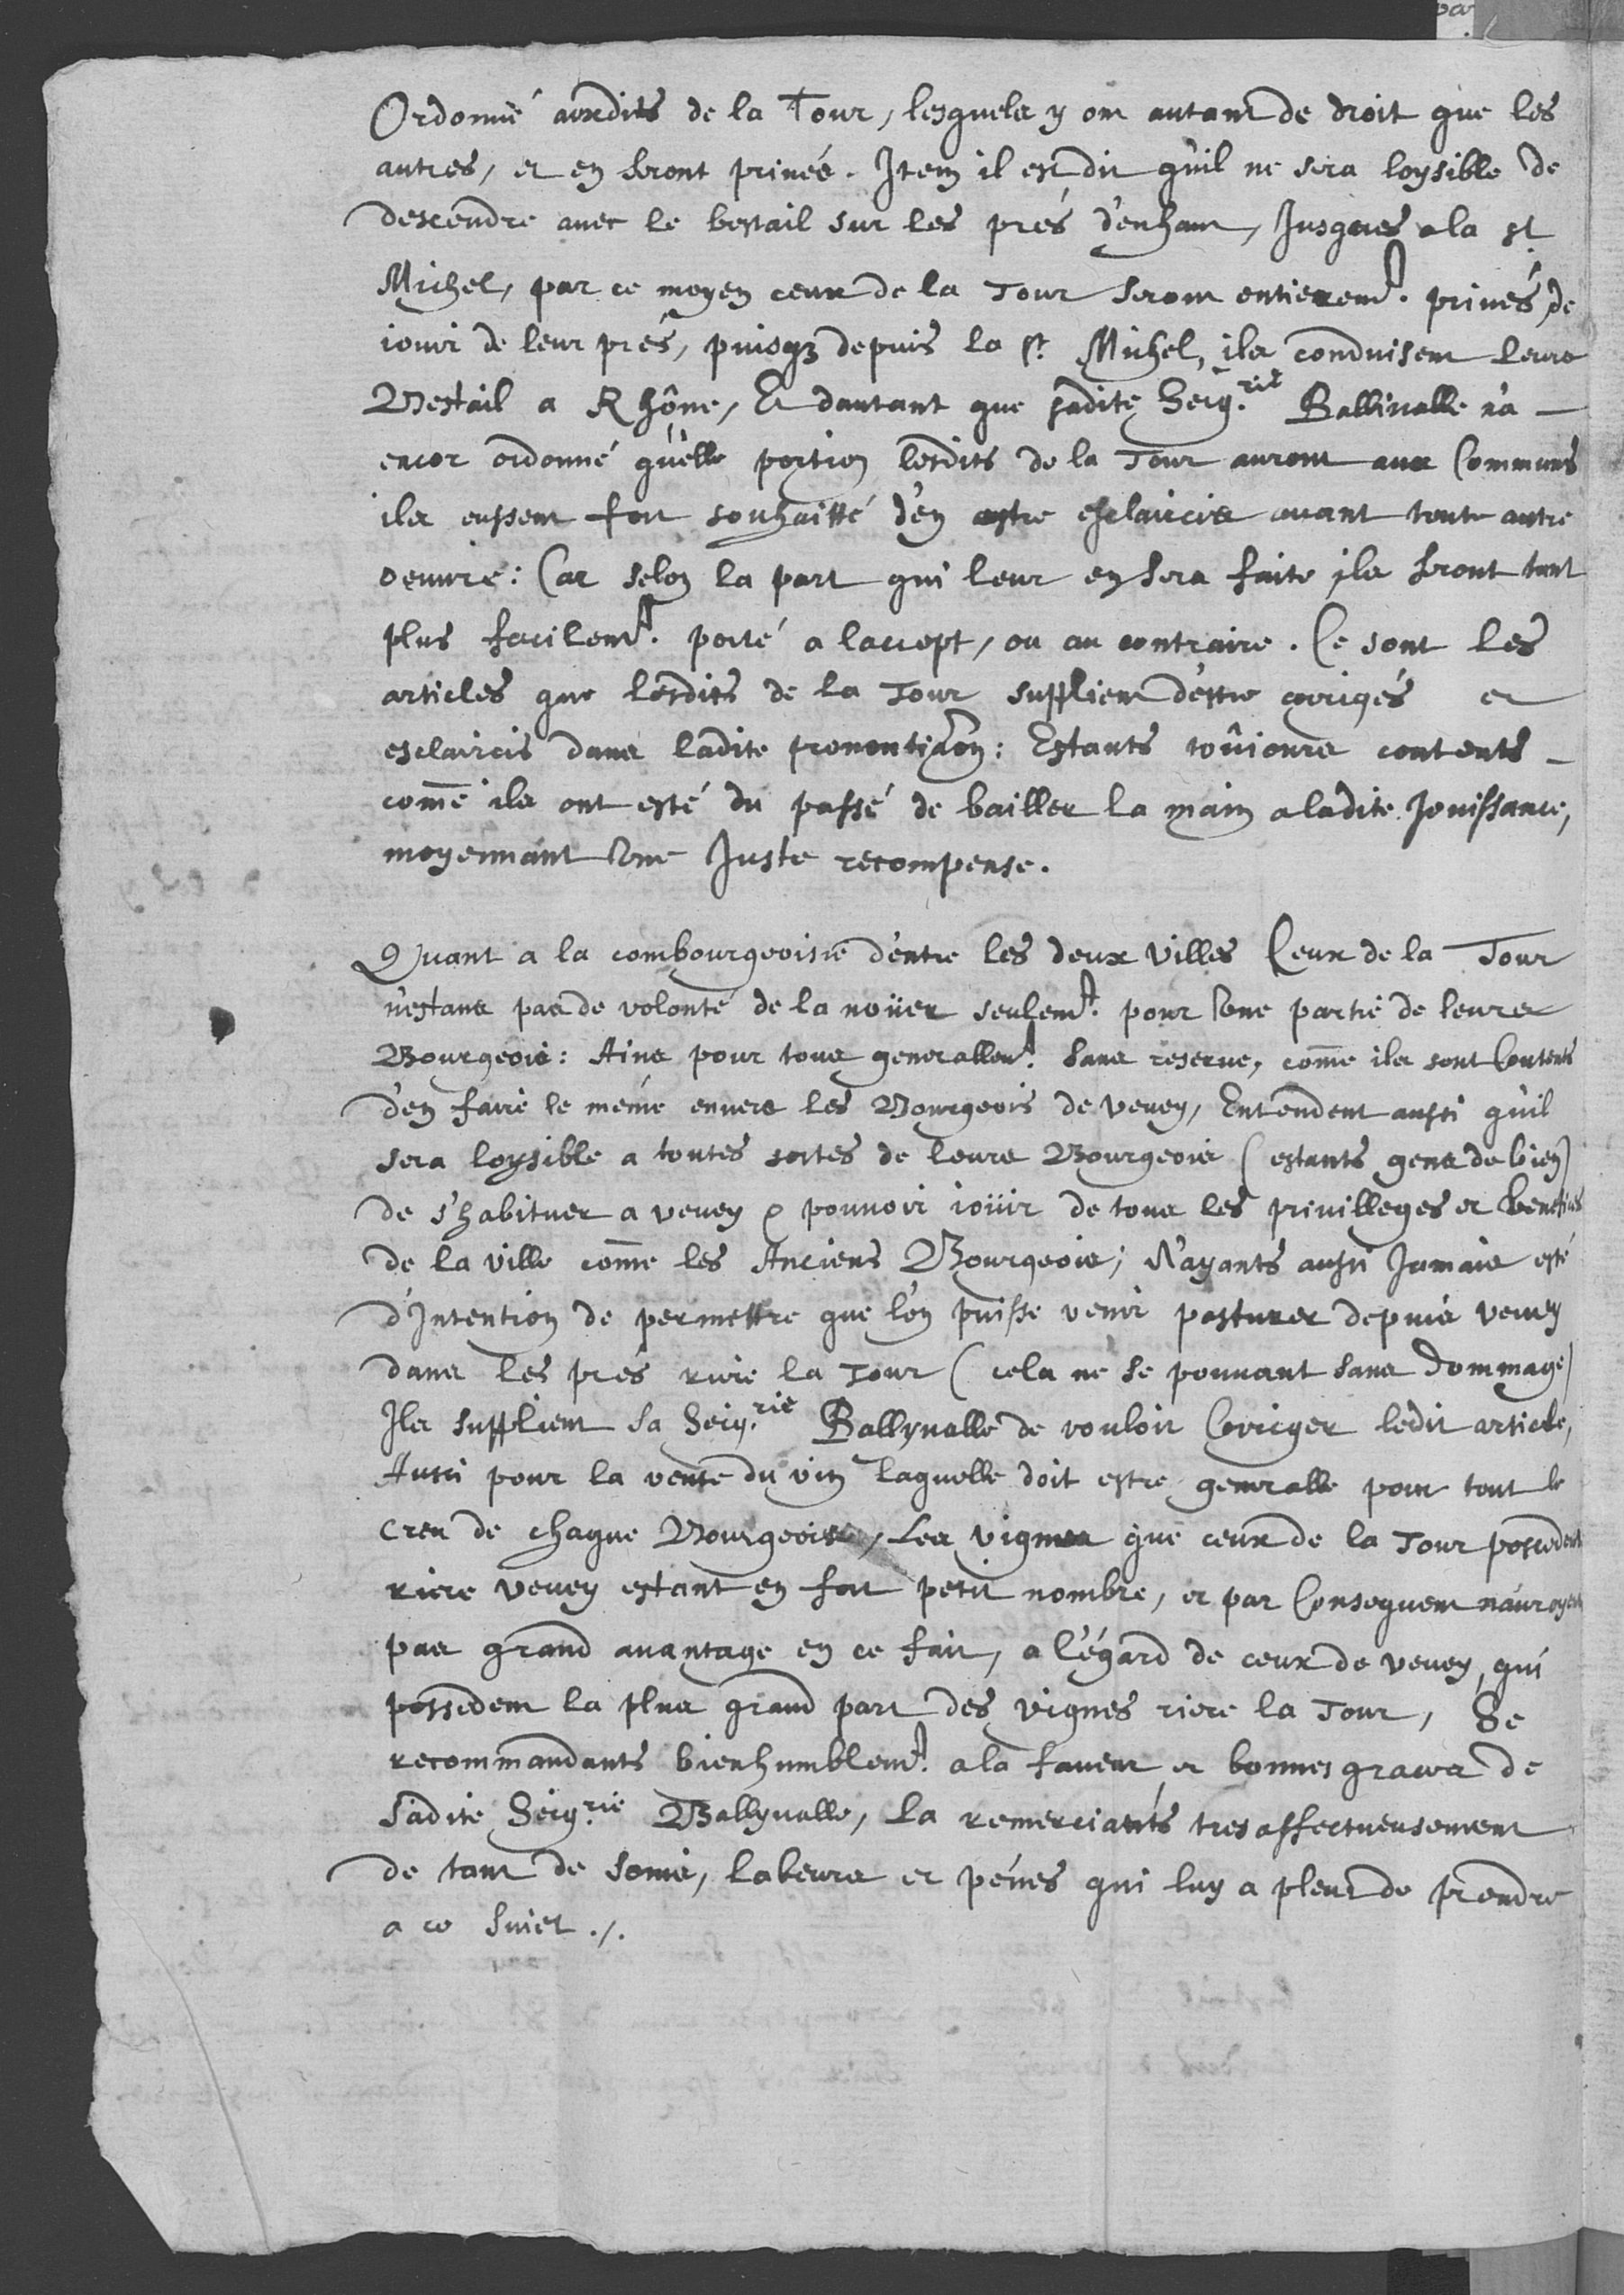 Ordonné auxdits de la Tour, lesquels y ont autant de droit que les
autres, et en seront privés. Item il est dit qu'il ne sera loysible de
descendre avec le bestail sur les prés d'enhaut, Jusques a la st
Michel, par ce moyen ceux de la Tour seront entieremt. privés de
iouir de leur prés, puisq3 depuis la st. Michel, ils conduisent leurs
Bestail a Rhône, Et dautant que sadite Seig.rie Ballivalle n'a -
encor ordonné qu'elle portion lesdits de la Tour auront aux Communs
ils eussent fort souhaitté d'en estre esclaircis avant toute autre
oeuvre: Car selon la part qui leur en sera faite ils seront tant
plus facilemt. porté a laccept, ou au contraire. Ce sont les
articles que lesdits de la Tour supplient d'estre corrigés et
esclaircis dans ladite pronontiaōn: Estants toûiours contents -
com̄e ils ont esté du passé de bailler la main a ladite Jouissance,
moyennant une Juste recompense.
Quant a la combourgeoisie d'entre les deux villes Ceux de la Tour
n'estans pas de volonté de la noüer seulemt. pour une partie de leurs
Bourgeois: Ains pour tous generallemt. sans reserve, com̄e ils sont Contents
d'en faire le méme envers les Bourgeois de vevey, Entendent aussi qu'il
sera loysible a toutes sortes de leurs Bourgeois (estants gens de bien)
de s'habituer a vevey & pouvoir ioüir de tous les privilleges et benefices
de la ville com̄e les Anciens Bourgeois; N'ayants aussi Jamais esté
d'Intention de permettre que l'on puisse venir pasturer depuis vevey
dans les prés riere la Tour (cela ne se pouvant sans dommage)
Ils supplient sa Seig.rie Ballyvalle de vouloir Corriger ledit article,
Aussi pour la vente du vin laquelle doit estre generalle pour tout le
creu de chaque Bourgeoisie, Les vignes que ceux de la Tour possedent
riere vevey estant en fort petit nombre, et par Consequent n'auroyent
pas grand avantage en ce fait, a l'égard de ceux de vevey, qui
possedent la plus grand part des vignes riere la Tour, Se
recommandants bienhumblemt. a la faveur et bonnes graces de
sadite Seig.rie Ballyvalle, la remerciants tres affectueusement
de tant de soins, labeurs et péines qui luy a pleut de prendre
a ce suiet ./.